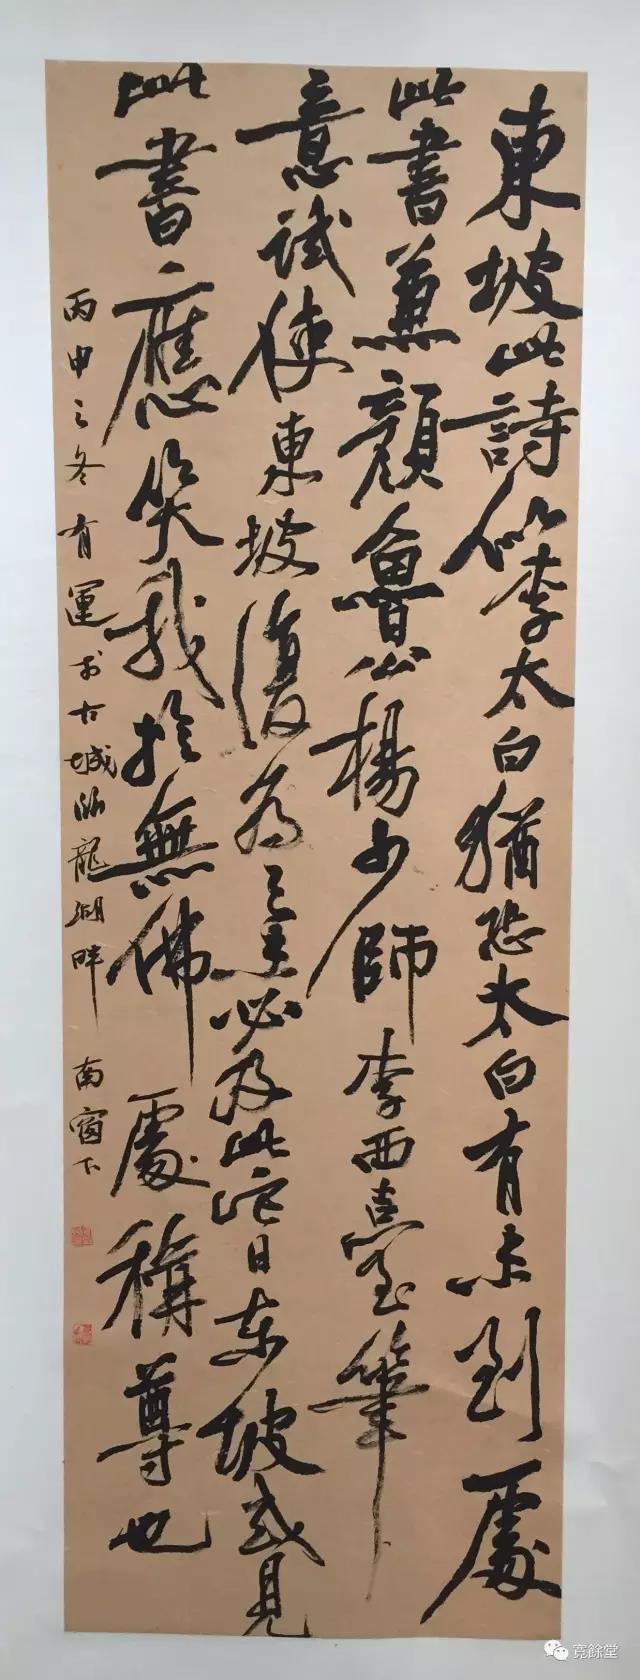 東坡此詩似李太白猶恐太白有未到處
此書兼顏魯公楊少師李西臺筆
意試使東坡復為之未必及此佗日東坡或見
此書應笑我於無佛處稱尊也
丙申之冬有運於古城卧龍湖畔南窗下
寬餘堂